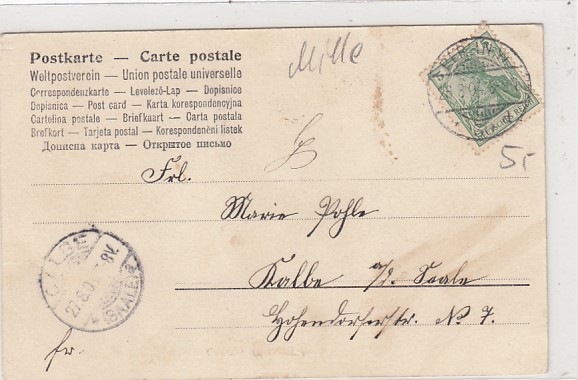 Postkarte — Carte postale
Weltpostverein — Union postale universelle
Correspondenzkarte — Levelező-Lap — Dopisnice
Dopisnica — Post card — Karta korespondencyjna
Cartolina postale — Briefkaart — Carta postala
Brefkort — Tarjeta postal — Korespondenční listek
Дописна карта — Открытое письмо
Mille
5,-
Frl.
Marie Pohle
Kalbe a/d. Saale
Hohendorferstr. No 7.
fr.
(SAALE)